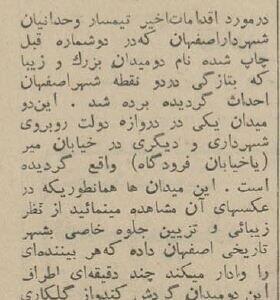 درمورد اقدامات‌اخیر تیمسار وحدانیان
شهرداراصفهان که‌در دوشماره قبل
چاپ شده نام دومیدان بزرك و زیبا
که بتازگی دردو نقطه شهراصفهان
احداث گردیده برده شد . این‌دو
میدان یکی در دروازه دولت روبروی
شهرداری و دیگری در خیابان میر
(یاخیابان فرودگاه) واقع گردیده
است . این میدان ها همانطوریکه در
عکسهای آن مشاهده مینمائید از نظر
زیبائی و تزیین جلوه خاصی بشهر
تاریخی اصفهان داده که‌هر بیننده‌ای
را وادار میکند چند دقیقه‌ای اطراف
این دومیدان گردش کندواز گلکاری